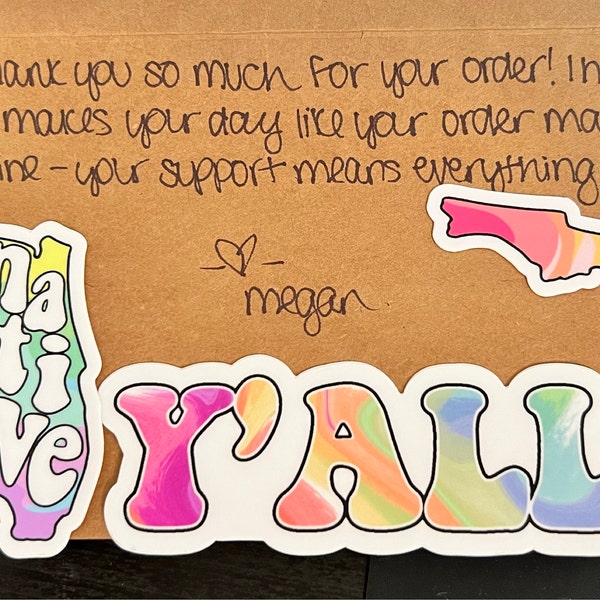 thank you so much for your order! I h
makes your day like your order ma
ine - your support means everything
megan
native
Y'ALL